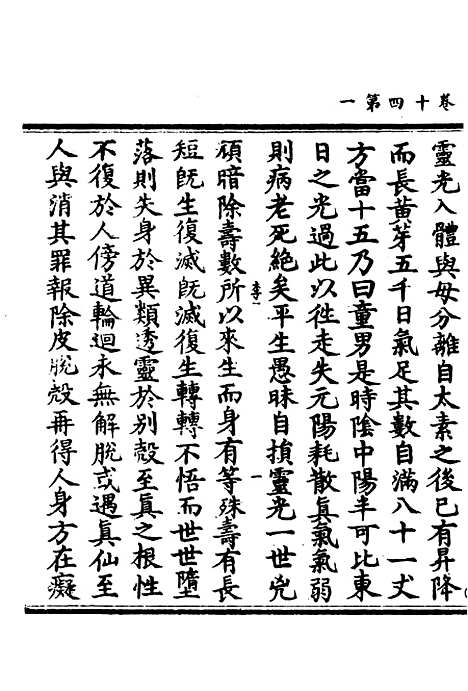 卷十四第一
靈光入體與母分離自太素之後已有昇降
而長黃芽五千日氣足其數自滿八十一丈
方當十五乃曰童男是時陰中陽半可比東
日之光過此以徃走失元陽耗散眞氣氣弱
則病老死絕矣平生愚昧自損靈光一世兇
頑暗除壽數所以來生而身有等殊壽有長
短旣生復滅旣滅復生轉轉不悟而世世墮
落則失身於異類透靈於別殼至眞之根性
不復於人傍道輪迴永無解脫或遇眞仙至
人與消其罪報除皮脫殼再得人身方在癡